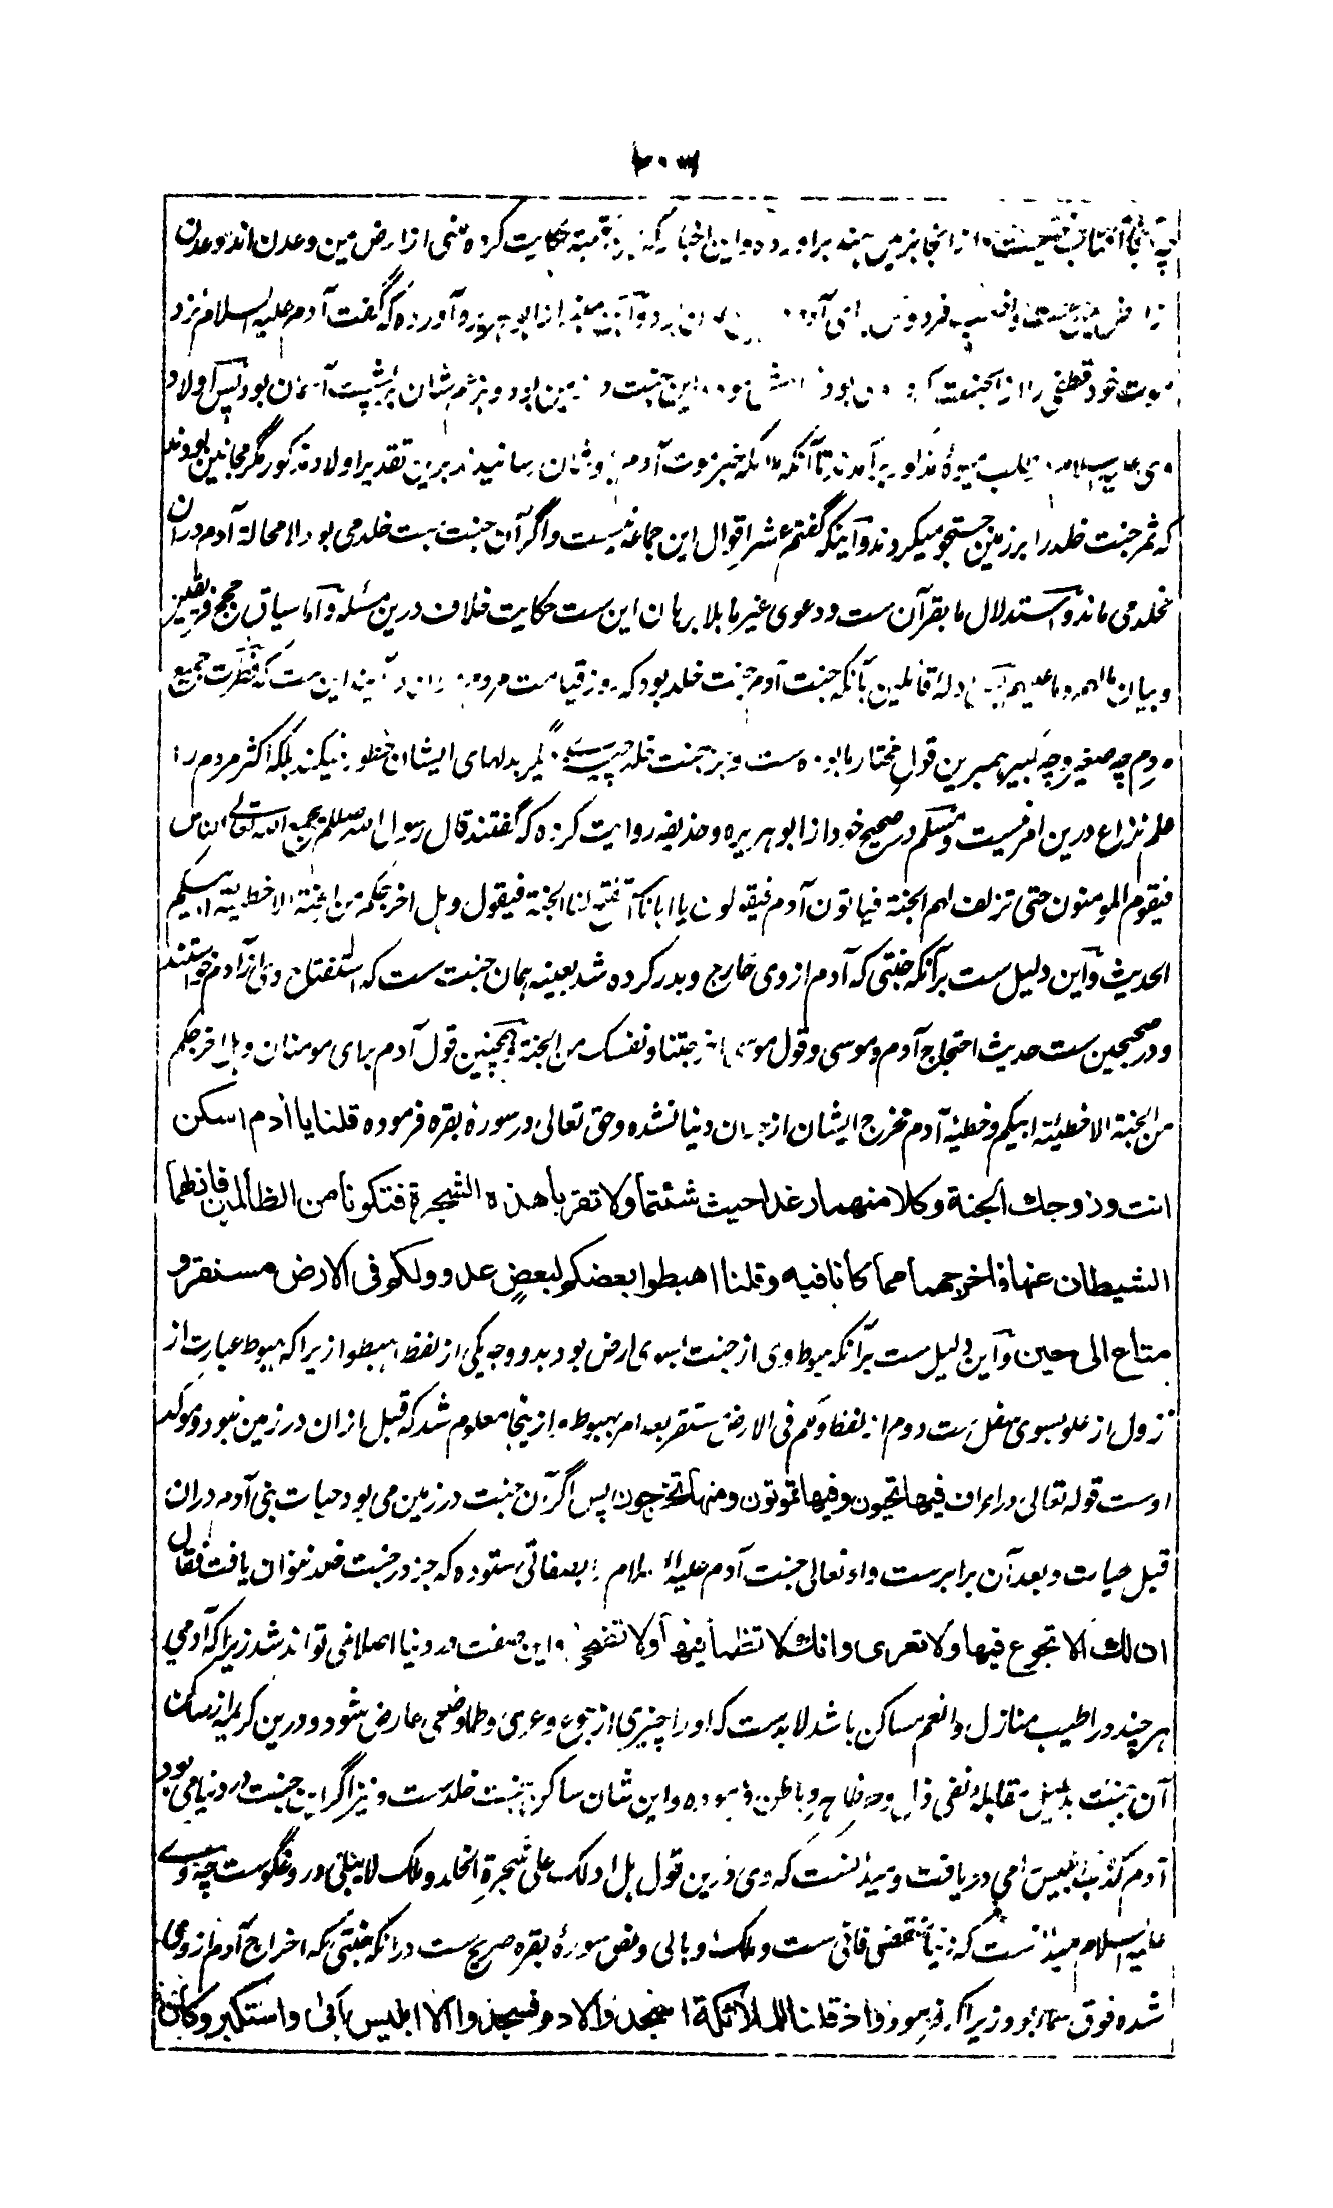 ۲۰۳
از انجا بزمین هند بر آورده و این اخبار که ابن قتیبه حکایت کرده منبی از ارض یمن و عدن اند و عدن
از ارض فردوس آورده که گفت آدم علیه السلام نزد
موت خود قطفی را از جنت این جنت در زمین بود و نزد ایشان بر پشت آسمان بود پس اولاد
وی علیه السلام بطلب میوهٔ مذکور بر آمدند تا آنکه ملائکه خبر موت آدم بوشان رسانیدند برین تقدیر اولاد مذکور مگر مجانین بودند
که ثمر جنت خلد را بر زمین جستجو میکردند و آنکه گفتم عشر اقوال این جماعه نیست و اگر آن جنت جنت خلد می بود لا محالة آدم دران
مخلد می ماند و استدلال ما بقرآن ست و دعوی غیر ما بلا برهان این ست حکایت خلاف درین مسئله و اما سیاق حجج فریقین
و بیان مالهم و ما علیهم پس ادلهٔ قائلین بآنکه جنت آدم جنت خلد بود که روز قیامت مردم دران در آیند این ست که فطرت جمیع
مردم چه صغیر و چه کبیر همبرین قول مختار ما بوده ست و جز جنت خلد چیزے دیگر بدلهای ایشان خطور نمیکند بلکه اکثر مردم را
علم نزاع درین امر نیست و مسلم در صحیح خود از ابو هریره و حذیفه روایت کرده که گفتند قال رسول الله صللم یجمع الله تعالی الناس
فیقوم المومنون حتی تزلف لهم الجنة فیاتون آدم فیقولون یا ابانا استفتح لنا الجنة فیقول وهل اخرجکم من الجنة الا خطیئة ابیکم
الحدیث و این دلیل ست برآنکه جنتی که آدم از وی خارج و بدر کرده شد بعینه همان جنت ست که استفتاح وی از آدم خواستند
و در صحیحین ست حدیث احتجاج آدم و موسی و قول موسی اخرجتنا و نفسک من الجنة و همچنین قول آدم برای مومنان و هل اخرجکم
من الجنة الا خطیئة ابیکم و خطیئه آدم مخرج ایشان از جنان دنیا نشده و حق تعالی در سورهٔ بقره فرموده قلنا یا آدم اسکن
انت وزوجك الجنة وكلا منهما رغدا حيث شئتما ولا تقربا هذه الشجرة فتكونا من الظالمين فازلهما
الشيطان عنها فاخرجهما مما كانا فيه وقلنا اهبطوا بعضكم لبعض عدو ولكم فى الارض مستقر و
متاع الى حين و این دلیل ست برآنکه هبوط وی از جنت بسوی ارض بود بدو وجه یکی از لفظ اهبطوا زیرا که هبوط عبارت از
نزول از علو بسوی سفل ست دوم از لفظ ولکم فی الارض مستقر بعد امر بهبوط و ازینجا معلوم شد که قبل ازان در زمین نبود و موکد
اوست قوله تعالی در اعراف فیها تحیون وفیها تموتون ومنها تخرجون پس اگر آن جنت در زمین می بود حیات بنی آدم دران
قبل حیات و بعد آن برابر ست و او تعالی جنت آدم علیه السلام را بصفاتی ستوده که جز در جنت خلد نتوان یافت فقال
ان لك الا تجوع فيها ولا تعرى وانك لا تظمأ فيها ولا تضحى و این صفت در دنیا اصلا نمی تواند شد زیرا که آدمی
هر چند در اطیب منازل و انعم مساکن باشد لابد ست که او را چیزی از جوع و عری و ظما و ضحی عارض شود و درین کریمه از ساکن
آن جنت بدلیل مقابله نفی ذل و حر ظاهر و باطن فرموده و این شان ساکن جنت خلد ست و نیز اگر این جنت در دنیا می بود
آدم کذب ابلیس را می دریافت و میدانست که وی درین قول هل ادلک علی شجرة الخلد و ملک لا یبلی دروغگوست چه وے
علیه السلام میدانست که دنیا منقضی فانی ست و ملک وی بالی و نص سورهٔ بقره صریح ست در آنکه جنتی که اخراج آدم از وی
شده فوق سماء بود زیرا که فرموده واذ قلنا للملائكة اسجدوا لآدم فسجدوا الا ابليس ابى واستكبر وكان من